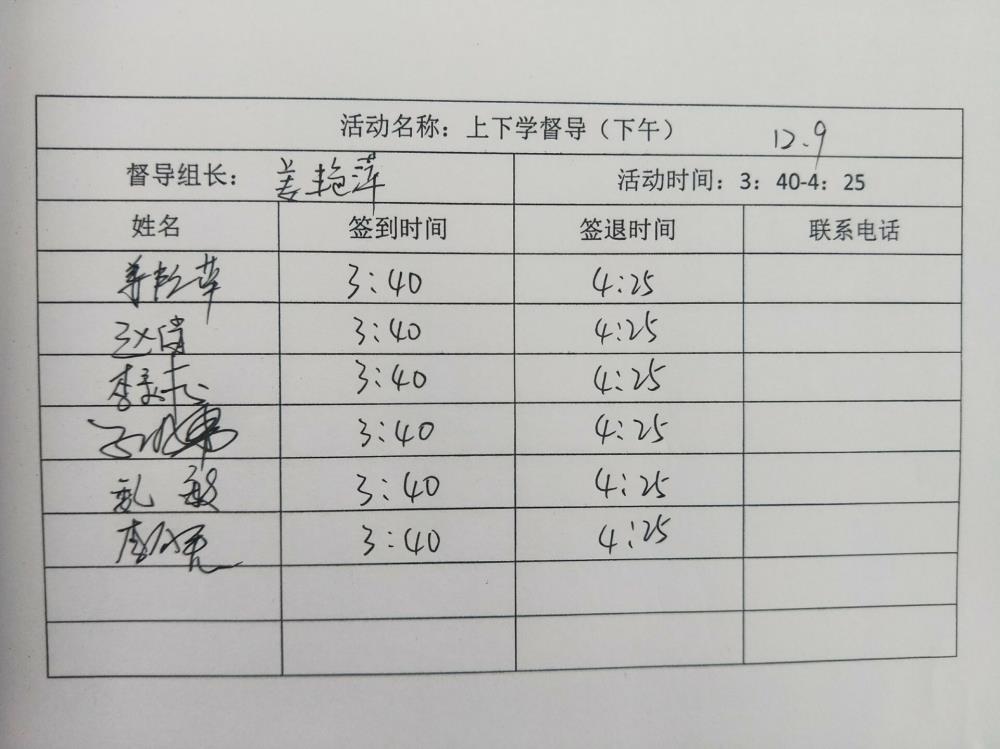 活动名称：上下学督导（下午） 12.9
督导组长：姜艳萍 活动时间：3：40-4：25
姓名 签到时间 签退时间 联系电话
姜艳萍 3:40 4:25
赵倩 3:40 4:25
3:40 4:25
3:40 4:25
敏 3:40 4:25
3:40 4:25